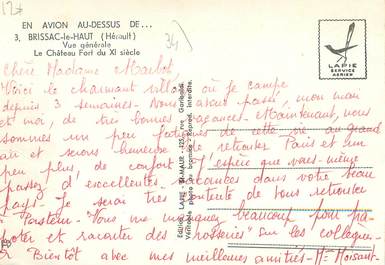 12€
34
EN AVION AU-DESSUS DE...
3, BRISSAC-le-HAUT (Hérault)
Vue générale
Le Château Fort du XI siècle
LAPIE
SERVICE
AERIEN
Chère Madame
Voici le charmant village où je campe
depuis 3 semaines - Nous avons passé, mon mari
et moi, de très bonnes vacances - Maintenant, nous
sommes un peu fatigués de cette vie au grand
air et serons heureux de retrouver Paris et un
peu plus de confort - J'espère que vous-même
passez d'excellentes vacances dans votre beau
pays - Je serai très contente de vous retrouver
à Pasteur - Vous me manquez beaucoup pour pa-
poter et raconter des "rosseries" sur les collègues -
à Bientôt avec mes meilleures amitiés - Mme Hoisant
Editions LAPIE - St-MAUR
Véritable photo au bromure - Reprod. interdite.